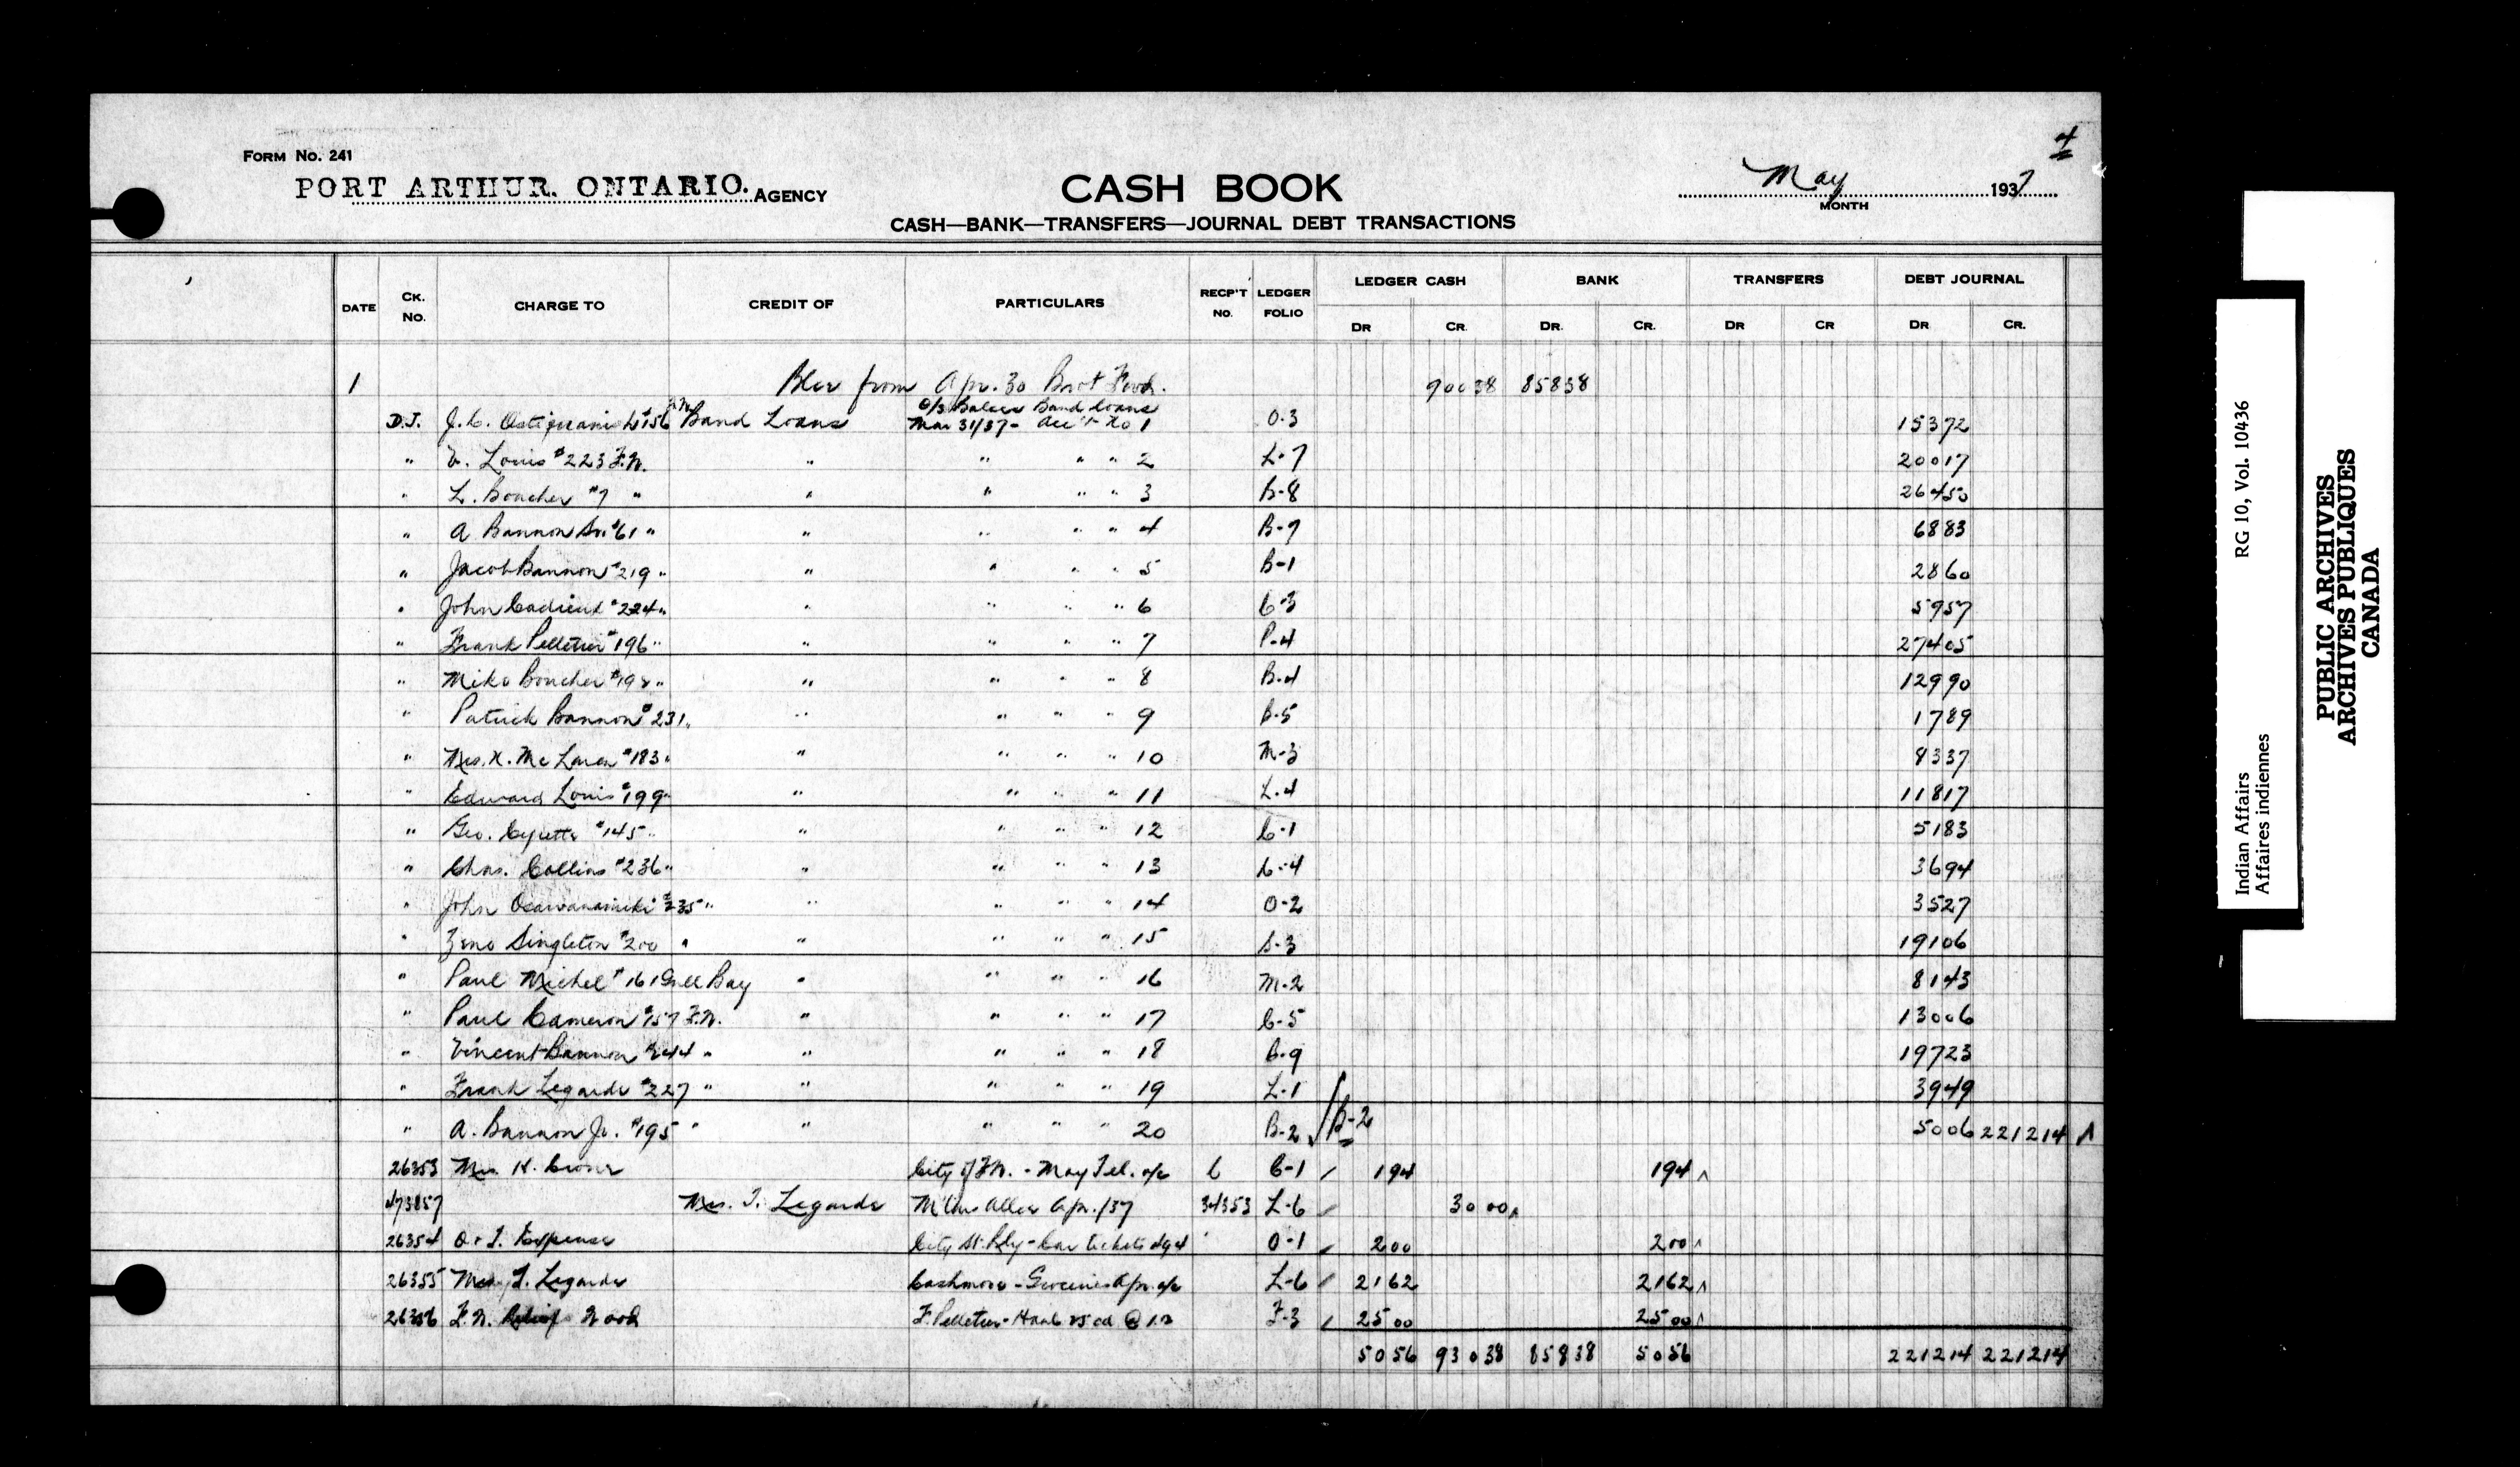 4
FORM NO. 241
PORT ARTHUR. ONTARIO. AGENCY
CASH BOOK
May 1937
MONTH
CASH—BANK—TRANSFERS—JOURNAL DEBT TRANSACTIONS
DATE CK. NO. CHARGE TO CREDIT OF PARTICULARS RECP'T NO. LEDGER FOLIO LEDGER CASH BANK TRANSFERS DEBT JOURNAL
DR CR. DR. CR. DR CR DR CR.
1 from Apr. 30 90038 85838
D.J. J. C. #156 Band Loans O/S Band Loans Mar 31/37 - Acc't No 1 O.3 15372
" Louis #223 F.W. " " " " 2 L-7 20017
" L. Boucher #7 " " " " " 3 B-8 26450
" A Bannon Sr. #61 " " " " " 4 B-7 6883
" Jacob Bannon #219 " " " " " 5 B-1 2860
" John Cadieux #224 " " " " " 6 C-3 5957
" Frank Pelletier #196 " " " " " 7 P-4 27405
" Mike Boucher " " " " " 8 B-4 12990
" Patrick Bannon #231 " " " " " 9 B-5 1789
" Mrs. X. McLaren #183 " " " " " 10 M-3 8337
" Edward Louis #199 " " " " " 11 L-4 11817
" Geo. Cyrette #145 " " " " " 12 C-1 5183
" Chas. Collins #236 " " " " " 13 C-4 3694
" John #235 " " " " " 14 O-2 3527
" Zeno Singleton #200 " " " " " 15 S-3 19106
" Paul Michel #161 Gull Bay " " " " 16 M-2 8143
" Paul Cameron #157 F.W. " " " " 17 C-5 13006
" Vincent Bannon #244 " " " " " 18 B-9 19723
" Frank Legarde #227 " " " " " 19 L-1 3949
" A. Bannon Jr. #195 " " " " " 20 B-2 B-2 5006 221214
26353 Mrs. K. City of F.W. - May Tel. a/c C C-1 194 194
473857 Mrs. T. Legarde M'ths Allce Apr./37 34353 L-6 3000
26354 O. & T. Expense City St. Rly - Car tickets O-1 200 200
26355 T. Legarde Cashmore - Groceries Apr. a/c L-6 2162 2162
26356 F.W. Relief Wood F. Pelletier - Haul 25 cd @ 1.00 F-3 2500 2500
5056 93038 85838 5056 221214 221214
Indian Affairs RG 10, Vol. 10436
Affaires indiennes
PUBLIC ARCHIVES
ARCHIVES PUBLIQUES
CANADA